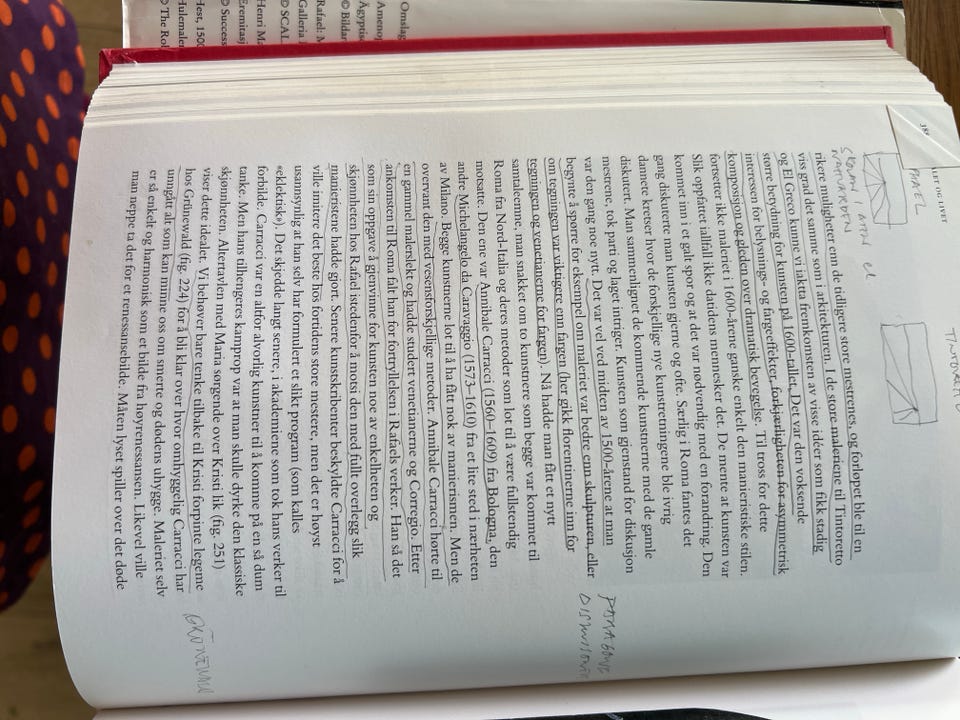 388
LIET OG LIVET
RAFAEL
TINTORETTO
SKOLEN I ATEN
rikere muligheter enn de tidligere store mestrenes, og forløpet ble til en
viss grad det samme som i arkitekturen. I de store maleriene til Tintoretto
og El Greco kunne vi iaktta fremkomsten av visse idéer som fikk stadig
større betydning for kunsten på 1600-tallet. Det var den voksende
interessen for belysnings- og fargeeffekter, forkjærligheten for asymmetrisk
komposisjon og gleden over dramatisk bevegelse. Til tross for dette
fortsetter ikke maleriet i 1600-årene ganske enkelt den manieristiske stilen.
Slik oppfattet iallfall ikke datidens mennesker det. De mente at kunsten var
kommet inn i et galt spor og at det var nødvendig med en forandring. Den
gang diskuterte man kunsten gjerne og ofte. Særlig i Roma fantes det
dannete kretser hvor de forskjellige nye kunstretningene ble ivrig
diskutert. Man sammenlignet de kommende kunstnerne med de gamle
mestrene, tok parti og laget intriger. Kunsten som gjenstand for diskusjon
var den gang noe nytt. Det var vel ved midten av 1500-årene at man
begynte å spørre for eksempel om maleriet var bedre enn skulpturen, eller
om tegningen var viktigere enn fargen (her gikk florentinerne inn for
tegningen og venetianerne for fargen). Nå hadde man fått et nytt
samtaleemne, man snakket om to kunstnere som begge var kommet til
Roma fra Nord-Italia og deres metoder som lot til å være fullstendig
motsatte. Den ene var Annibale Carracci (1560–1609) fra Bologna, den
andre Michelangelo da Caravaggio (1573–1610) fra et lite sted i nærheten
av Milano. Begge kunstnerne lot til å ha fått nok av manierismen. Men de
overvant den med vesensforskjellige metoder. Annibale Carracci hørte til
en gammel malerslekt og hadde studert venetianerne og Corregio. Etter
ankomsten til Roma falt han for fortryllelsen i Rafaels verker. Han så det
som sin oppgave å gjenvinne for kunsten noe av enkelheten og
skjønnheten hos Rafael istedenfor å motsi den med fullt overlegg slik
manieristene hadde gjort. Senere kunstskribenter beskyldte Carracci for å
ville imitere det beste hos fortidens store mestere, men det er høyst
usannsynlig at han selv har formulert et slikt program (som kalles
«eklektisk»). Det skjedde langt senere, i akademiene som tok hans verker til
forbilde. Carracci var en altfor alvorlig kunstner til å komme på en så dum
tanke. Men hans tilhengeres kamprop var at man skulle dyrke den klassiske
skjønnheten. Altertavlen med Maria sørgende over Kristi lik (fig. 251)
viser dette idealet. Vi behøver bare tenke tilbake til Kristi forpinte legeme
hos Grünewald (fig. 224) for å bli klar over hvor omhyggelig Carracci har
unngått alt som kan minne oss om smerte og dødens uhygge. Maleriet selv
er så enkelt og harmonisk som et bilde fra høyrenessansen. Likevel ville
man neppe ta det for et renessansebilde. Måten lyset spiller over det døde
GRÜNEWALD
Omslag
Ägyptisc
Amenop
© Bildar
Rafael: M
Galleria
© SCAL
Henri Ma
Eremitasj
© Success
Hest, 1500
Hulemaler
© The Rol